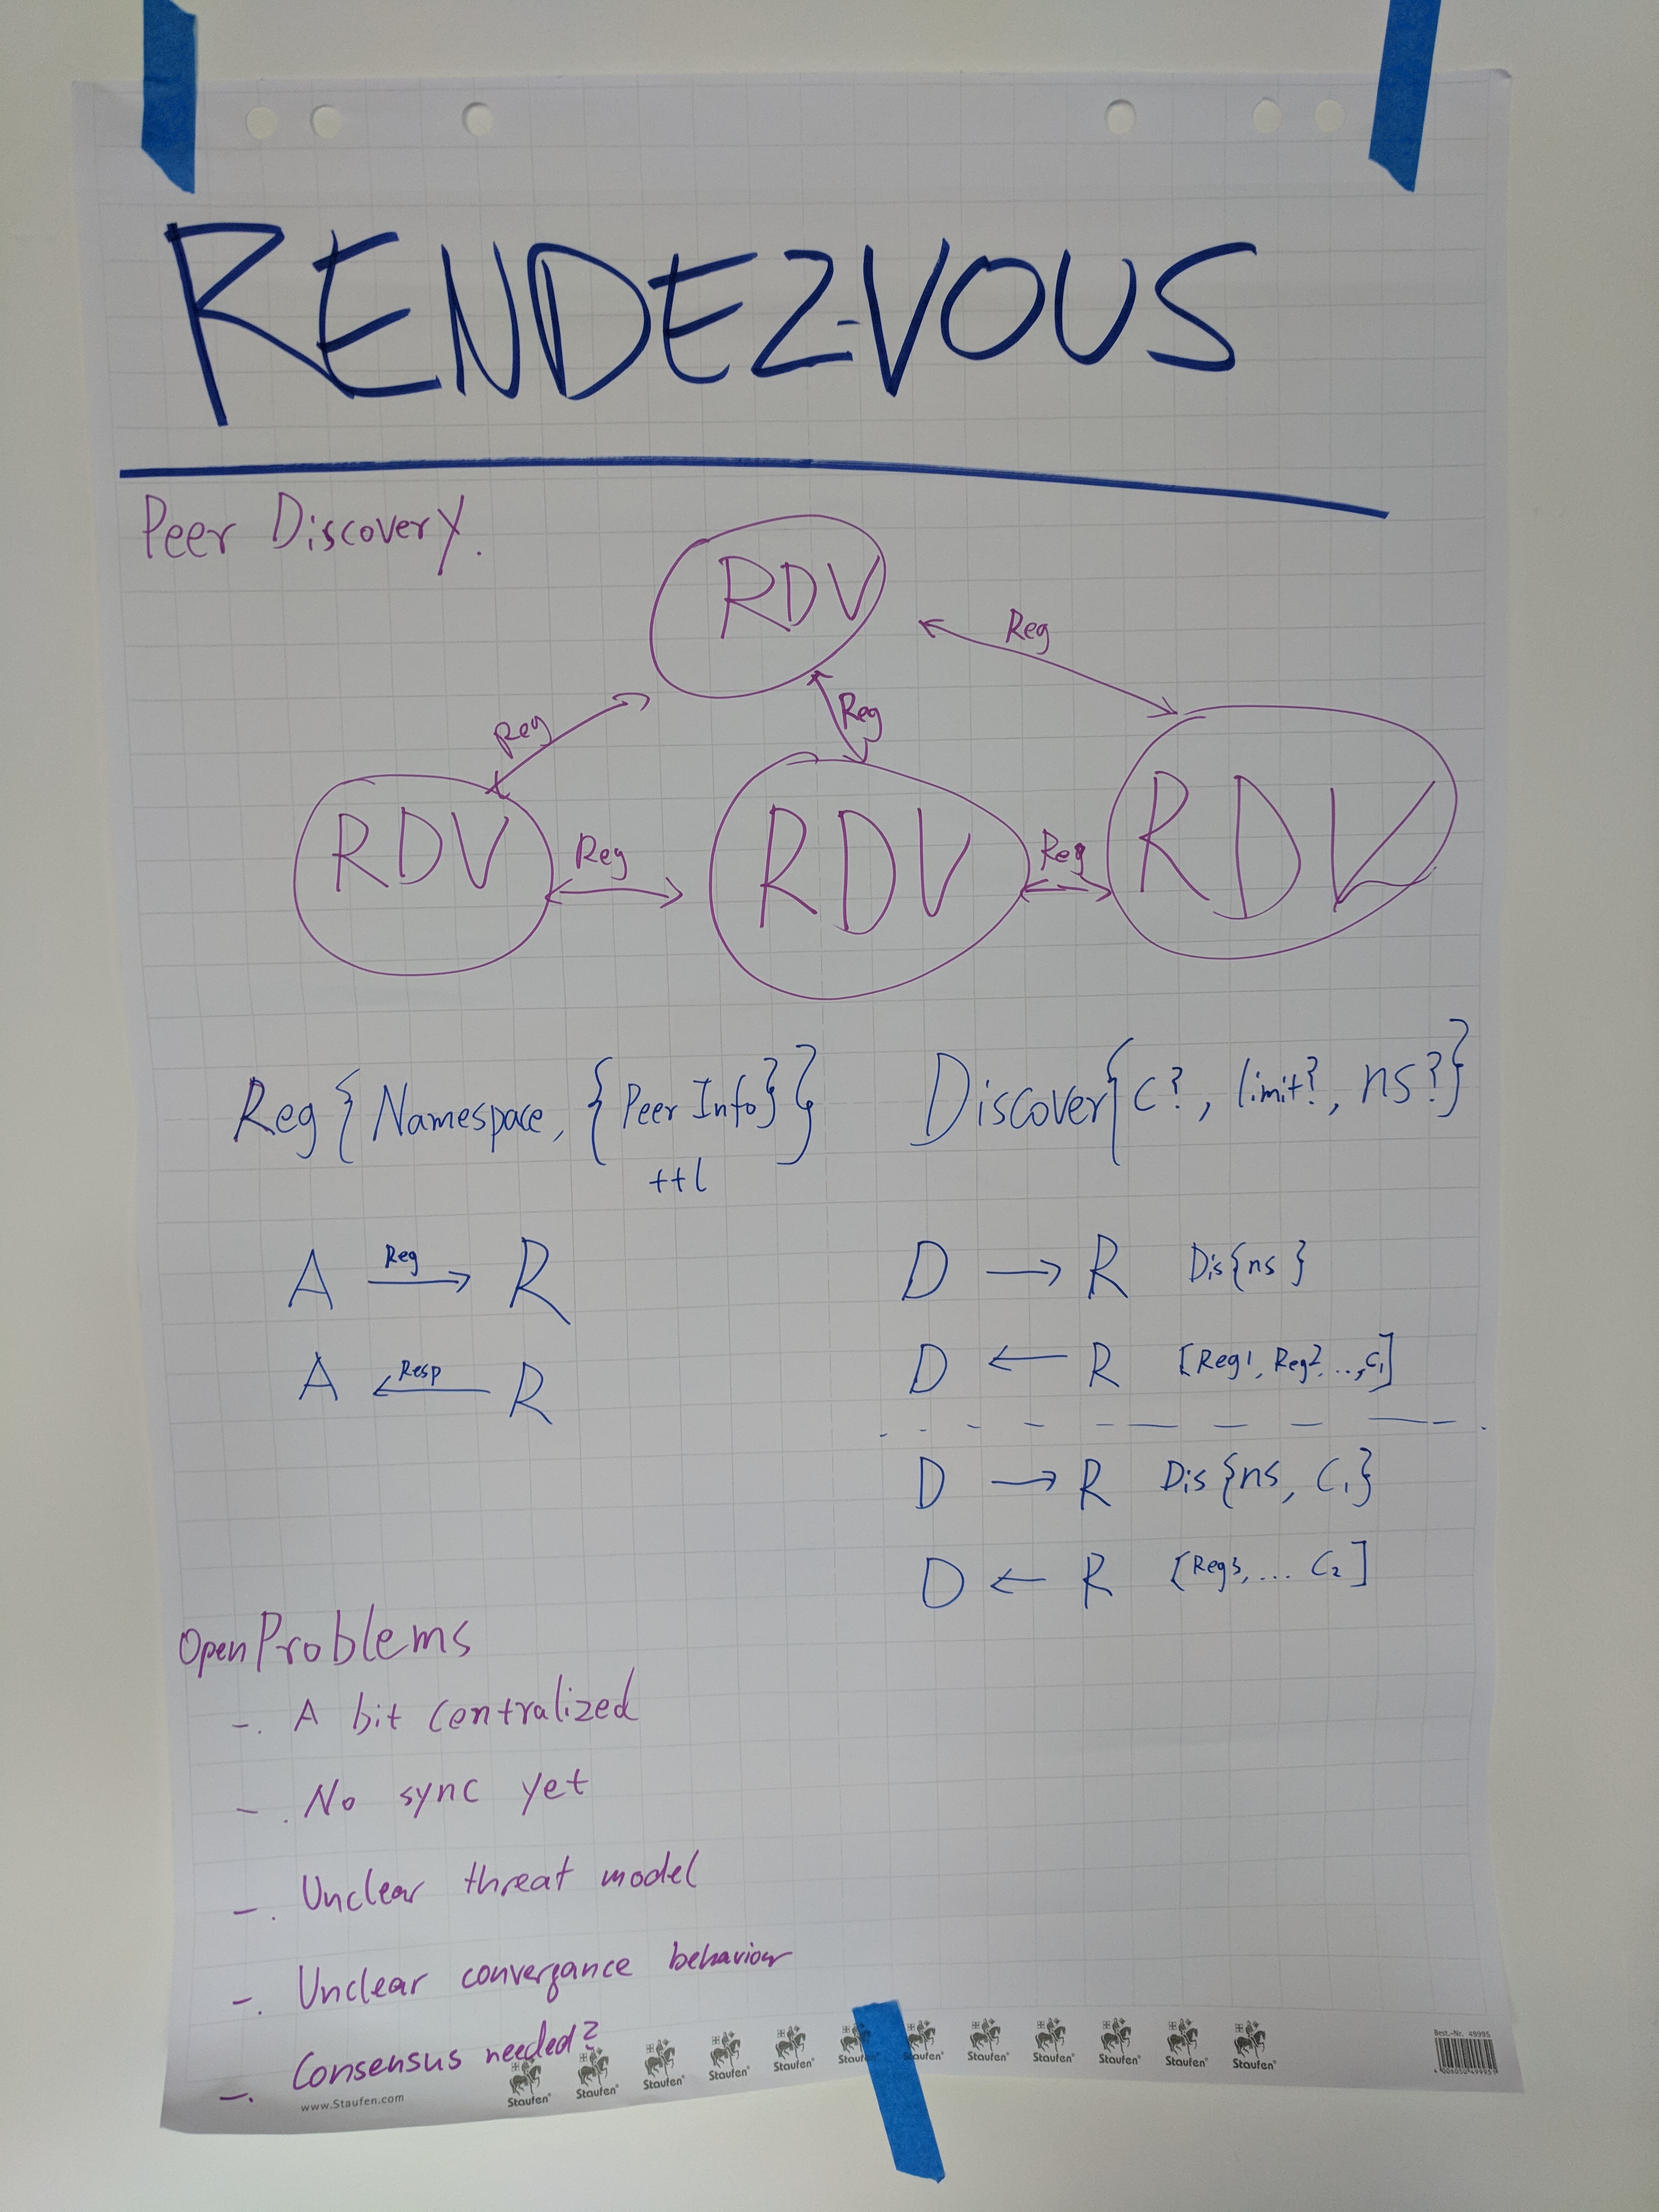 RENDEZVOUS
Peer Discovery.
RDV
Reg
Reg
Reg
RDV
Reg
RDV
Reg
RDV
Reg { Namespace, { Peer Info } }
ttl
Discover { C?, limit?, ns? }
A Reg → R
A ← Resp R
D → R Dis{ns}
D ← R [Reg1, Reg2, ..., C1]
D → R Dis {ns, C1}
D ← R [Reg3, ... C2]
Open Problems
-. A bit centralized
-. No sync yet
-. Unclear threat model
-. Unclear convergance behaviour
-. Consensus needed?
www.Staufen.com
Staufen® Staufen® Staufen® Staufen® Staufen® Staufen® Staufen® Staufen® Staufen® Staufen® Staufen® Staufen®
Best.-Nr. 49995